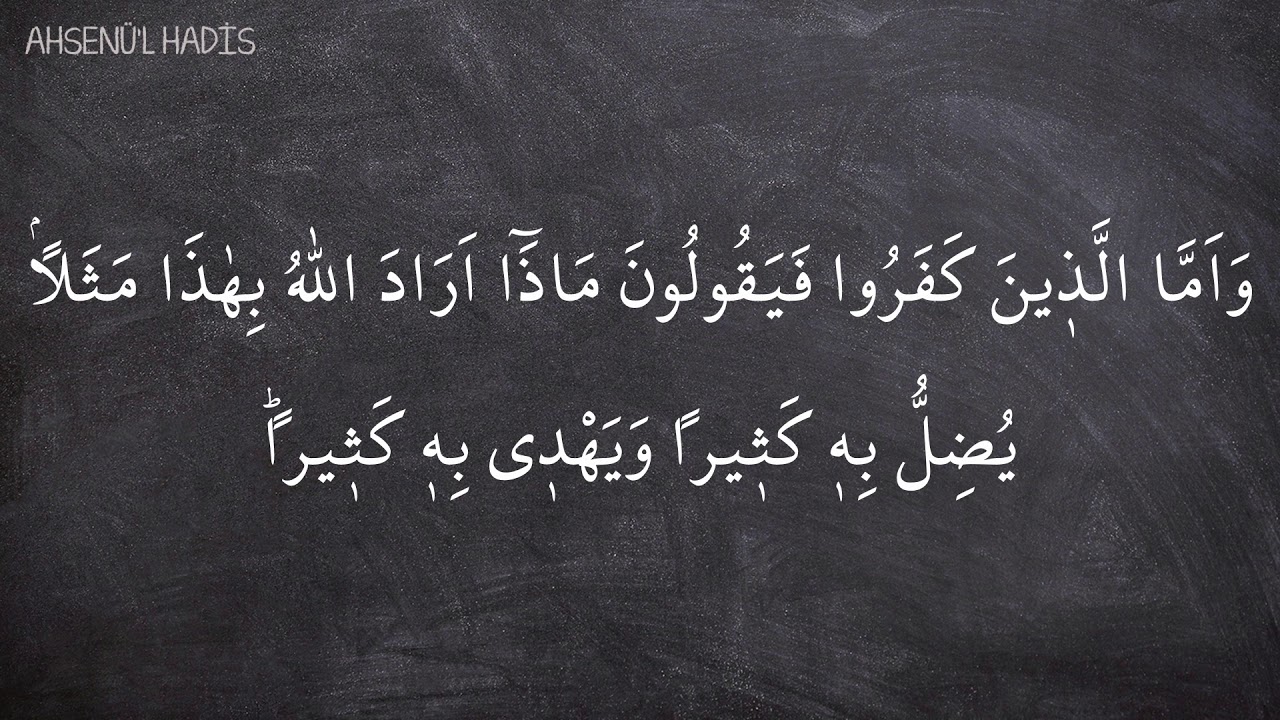 AHSENÜ'L HADİS
وَاَمَّا الَّذ۪ينَ كَفَرُوا فَيَقُولُونَ مَاذَٓا اَرَادَ اللّٰهُ بِهٰذَا مَثَلاًۢ
يُضِلُّ بِه۪ كَث۪يراً وَيَهْد۪ى بِه۪ كَث۪يراًؕ